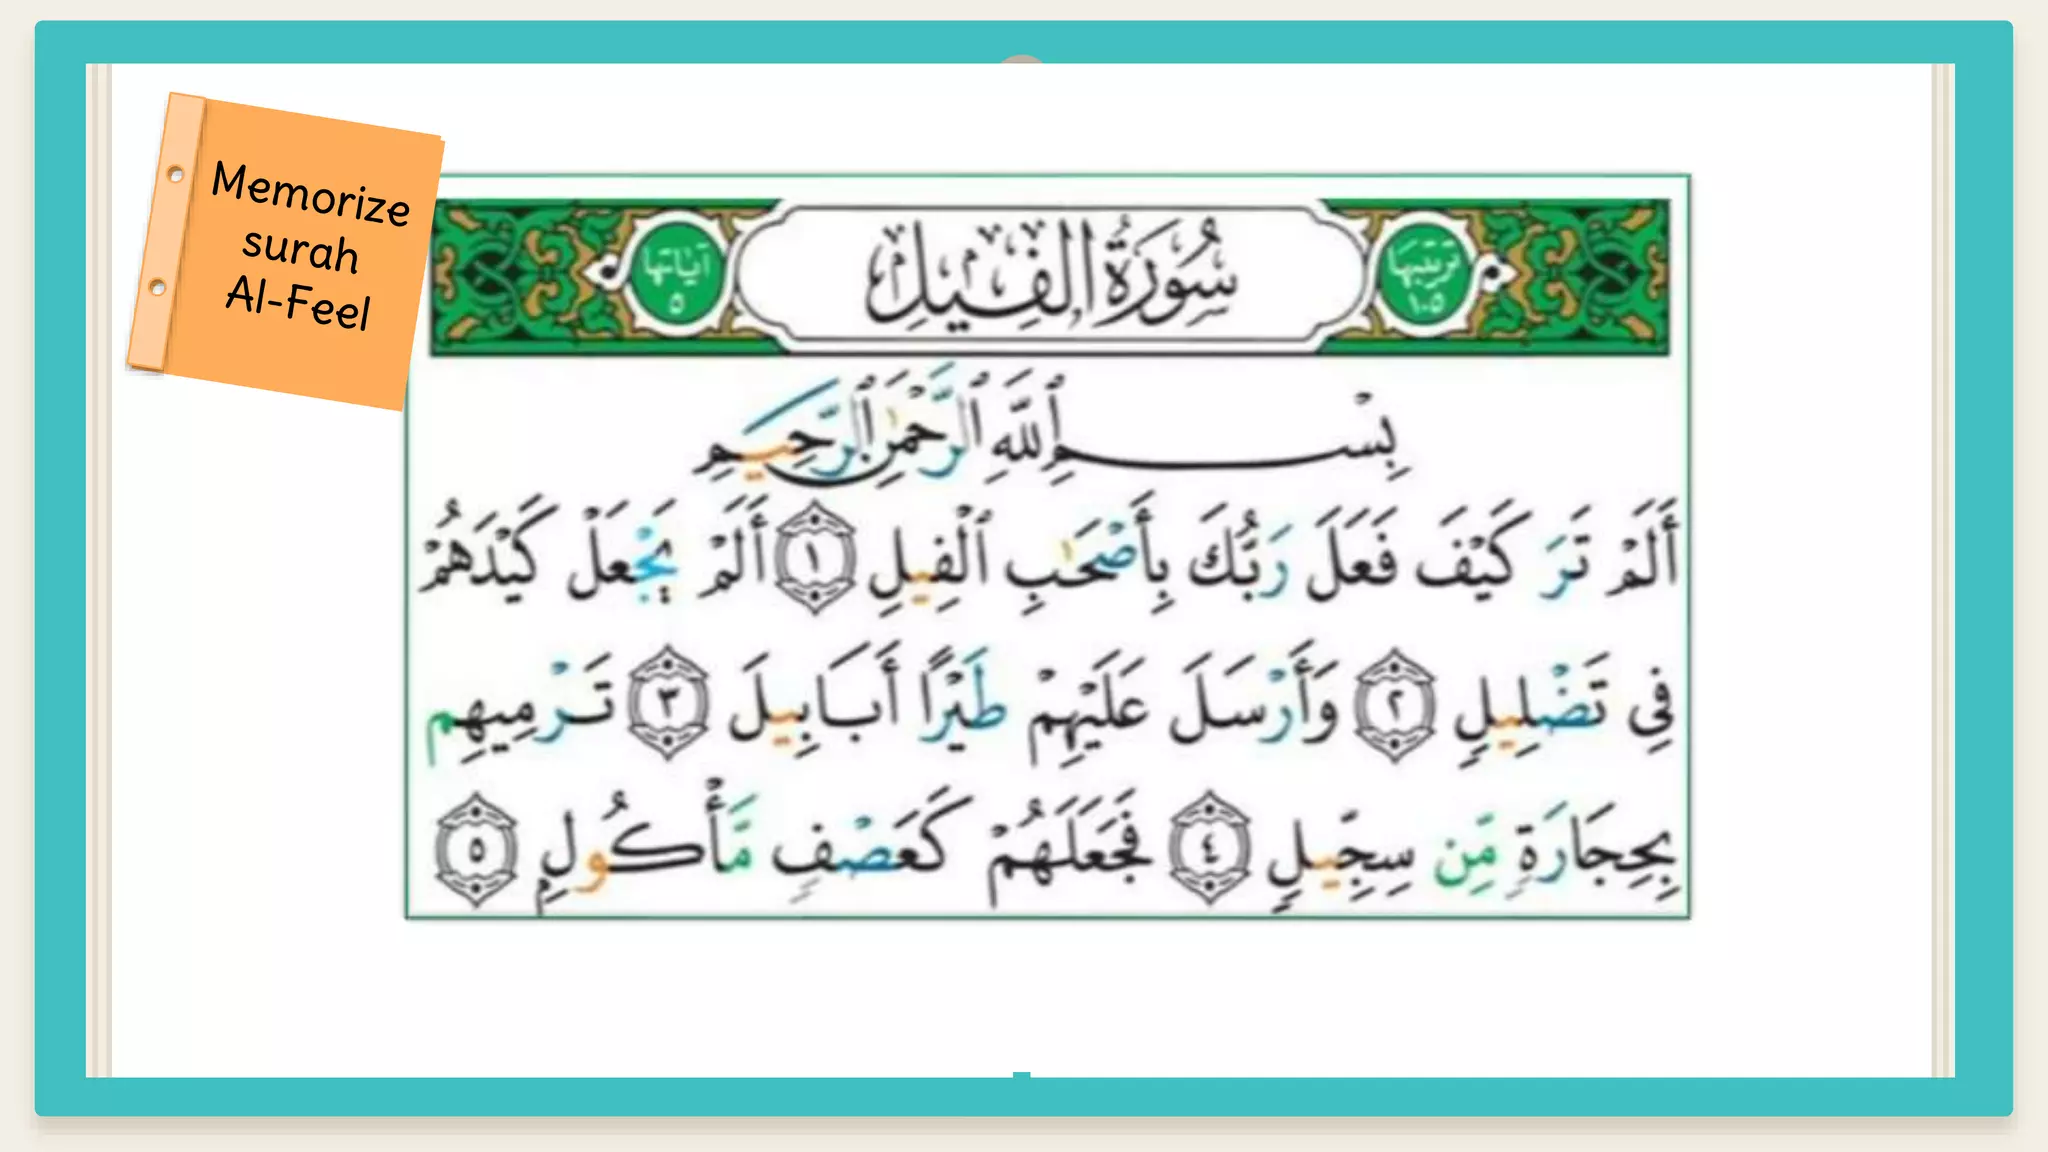 Memorize
surah
Al-Feel
ترتيبها ١٠٥
سُورَةُ الفِيلِ
آياتها ٥
بِسْمِ ٱللَّهِ ٱلرَّحْمَٰنِ ٱلرَّحِيمِ
أَلَمْ تَرَ كَيْفَ فَعَلَ رَبُّكَ بِأَصْحَٰبِ ٱلْفِيلِ ١ أَلَمْ يَجْعَلْ كَيْدَهُمْ
فِى تَضْلِيلٍ ٢ وَأَرْسَلَ عَلَيْهِمْ طَيْرًا أَبَابِيلَ ٣ تَرْمِيهِم
بِحِجَارَةٍ مِّن سِجِّيلٍ ٤ فَجَعَلَهُمْ كَعَصْفٍ مَّأْكُولٍۭ ٥